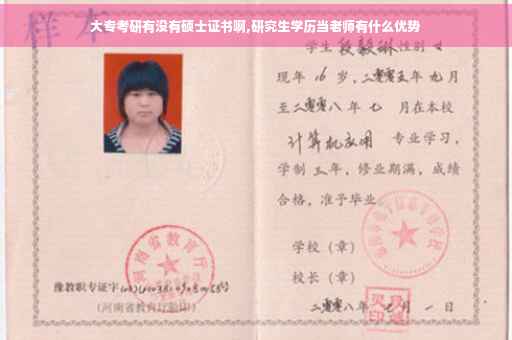 大专考研有没有硕士证书啊,研究生学历当老师有什么优势
样本
学生 段毅琳 性别 女
现年 16 岁,二零零五年 九月
至二零零八年 七 月在本校
计算机应用 专业学习,
学制 三年,修业期满,成绩
合格,准予毕业
学校(章)
校长(章)
二零零八年 七 月 一 日
河南省教育厅
豫教职专证字
(河南省教育厅验印)